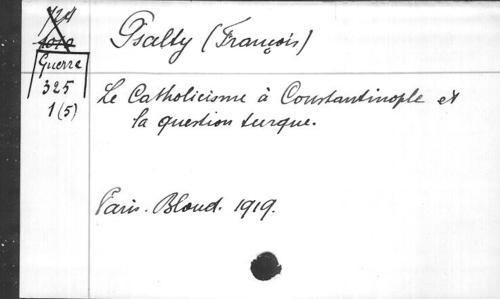 Psalty (François)
Guerre
325
1(5)
Le Catholicisme à Constantinople et
la question turque.
Paris. Bloud. 1919.